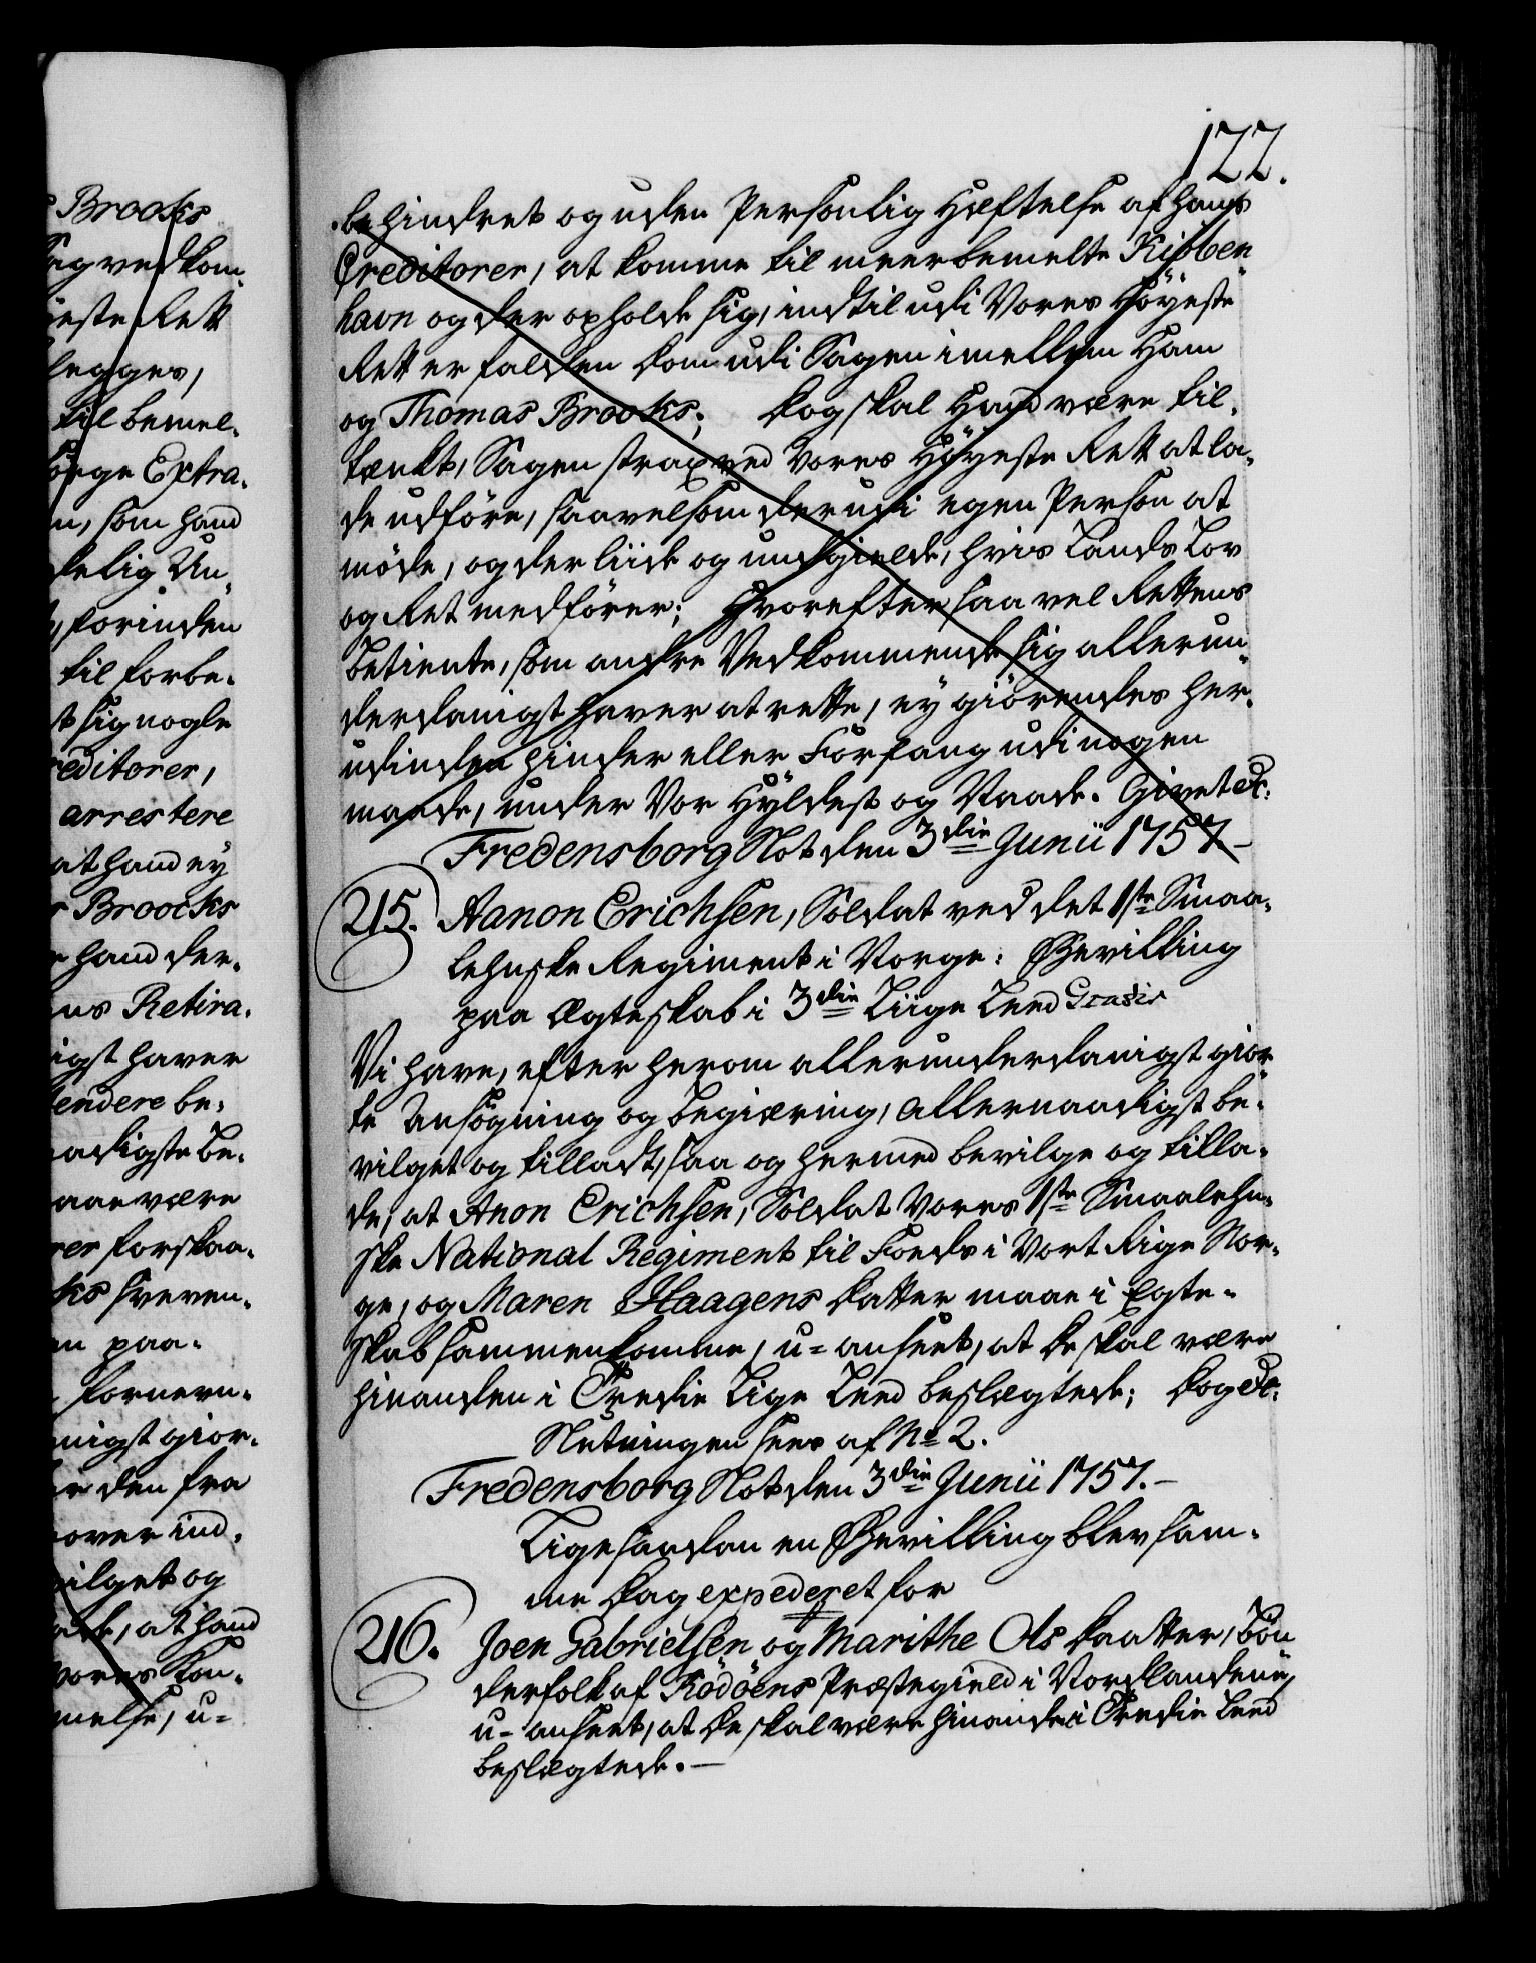 122.
behindret og uden Personlig Hæftelse af hans
Creditorer, at komme til meerbemelte Kiöben
havn og der opholde sig, indtil udi Vores Höyeste
Rett er falden Dom udi Sagen imellem Ham
og Thomas Brooks; Dog skal Hand være til,
tænkt, Sagen strax ved Vores Höyeste Rett at la,
de udföre, saavelsom derudi egen Person at
möde, og der liide og undgielde, hvis Lands Lov
og Ret medförer; Hvorefter saavel Rettens
betiente, som andre Vedkommende sig allerun
derdanigst haver at rette, ey giörendes her,
udinden hinder eller Forfang udi nogen
maade, under Vor Hyldest og Naade. Givet &c:
Fredensborg Slot den 3die Junii 1757.-
215. Aanon Erichsen, Soldat ved det 1ste Smaa,
lehnske Regiment i Norge: Bevilling
paa Ægteskab i 3die Liige Leed Gratis
Vi have, efter herom allerunderdanigst gior
te Ansögning og begiæring, allernaadigst be,
vilget og tilladt, saa og hermed bevilge og tilla,
de, at Anon Erichsen, Soldat Vores 1ste Smaalehn,
ske National Regiment til Foeds i Vort Rige Nor,
ge, og Maren Haagens Datter maae i Egte,
skab sammenkomme, u-anseet, at de skal være
hinanden i Tredie Lige Leed beslægtede; Dog &c:
Slutningen sees af No 2.
Fredensborg Slot den 3die Junii 1757.-
Ligesaadan en Bevilling blev sam,
me Dag expederet for
216. Joen Gabrielsen og Marithe Ols Daatter, Bön
derfolk af Rödöens Præstegield i Nordlandene,
u-anseet, at de skal være hinanden i Tredie Leed
beslægtede.-
Brooks
Sag vedkom,
öyeste Rett
legges,
til bemel,
Extra,
som hand
delig Un,
forinden
til forbe,
sig nogle
reditorer,
arrestere
at hand ey
Broocks
hand der,
Retira,
igst haver
endere be,
aadigste be,
aae være
rer forskaa,
paa,
fornevn,
nigst gior,
den fra
over ind,
vilget og
at hand
Vores Kon,
melse, u-